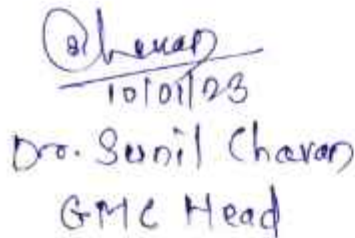 Chavan
10/01/23
Dr. Sunil Chavan
GMC Head